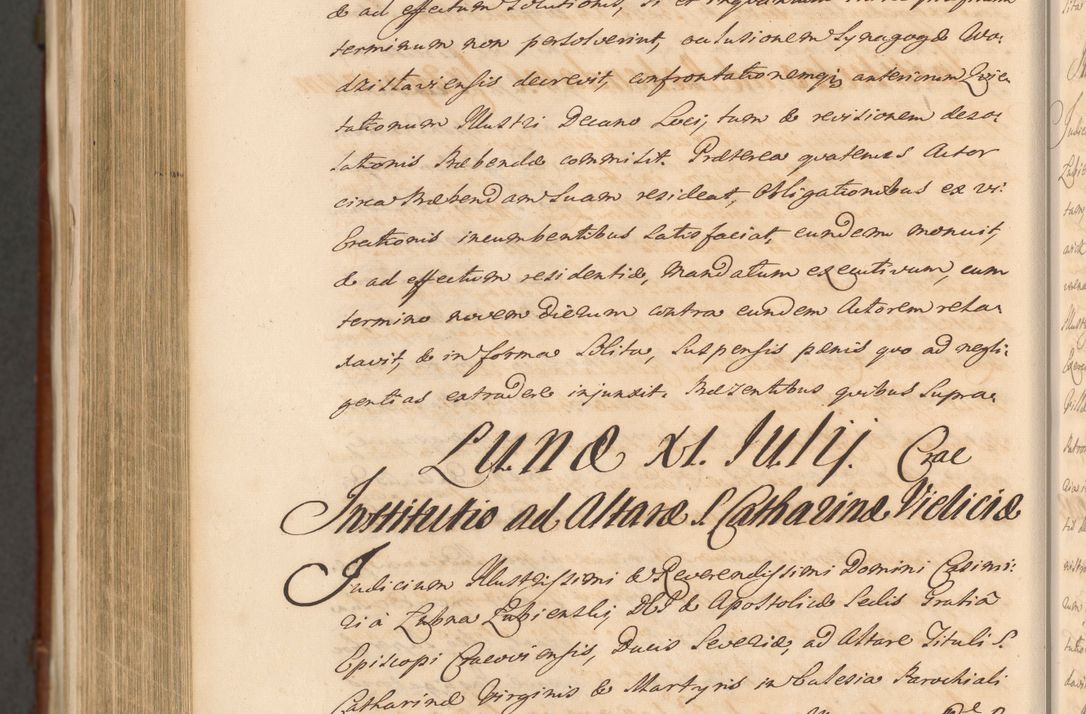 & ad effectum solutionis, si et inquantum
terminum non persolverint, occlusionem Synagogæ Wo:
dzislaviensis decrevit, confrontationemq; anteriorum Evic
tationum Illustri Decano Loci, tum & revisionem deso:
lationis Præbendæ commisit. Præterea quatenus Actor
circa Præbendam suam resideat, Obligationibus ex vi:
Erectionis incumbentibus satisfaciat, eundem monuit,
& ad effectum residentiæ, Mandatum executivum, cum
termino novem Dierum contra eundem Actorem rela:
xavit, & in forma Solita, suspensis pænis quo ad negli:
gentias extradere injunxit. Præzentibus quibus supra.
Lunæ XI. Julij. Crac
Institutio ad Altare S. Catharinæ Vieliciæ
Judicium Illustrissimi & Reverendissimi Domini Casimi:
ri à Łubna Łubienski, DEI & Apostolicæ Sedis Gratiâ
Episcopi Cracoviensis, Ducis Severiæ, ad Altare Tituli S.
Catharinæ Virginis & Martyris in Ecclesia Parochiali